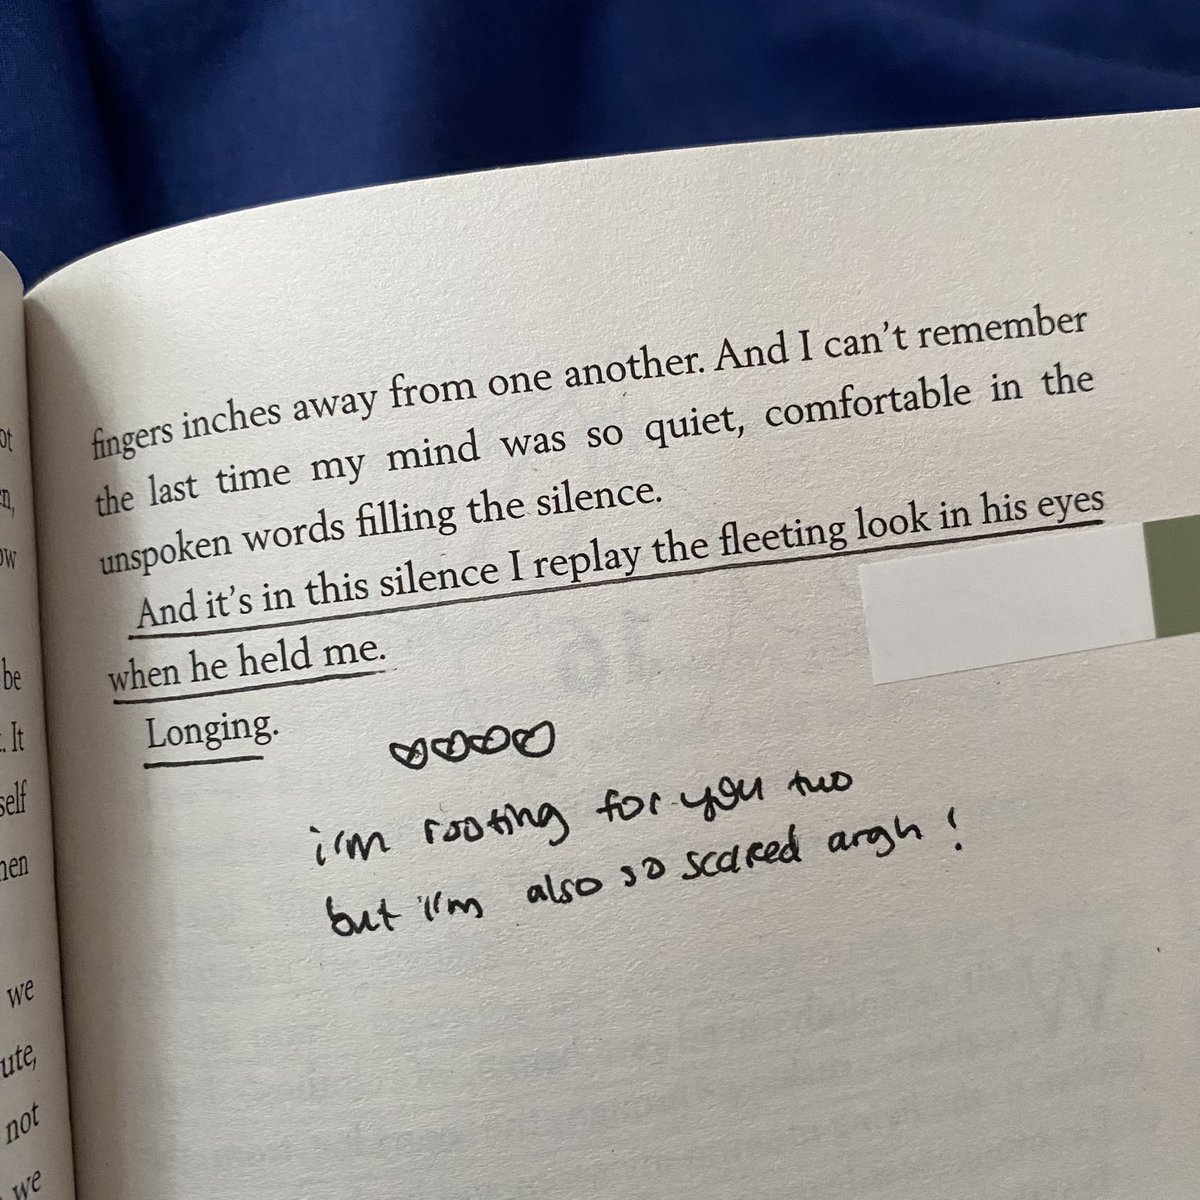 fingers inches away from one another. And I can't remember
the last time my mind was so quiet, comfortable in the
unspoken words filling the silence.
And it's in this silence I replay the fleeting look in his eyes
when he held me.
Longing.
i'm rooting for you two
but i'm also so scared argh!
be
. It
self
we
ute,
not
we